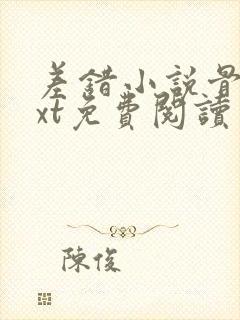 差錯小說
xt免費閱讀
陳俊